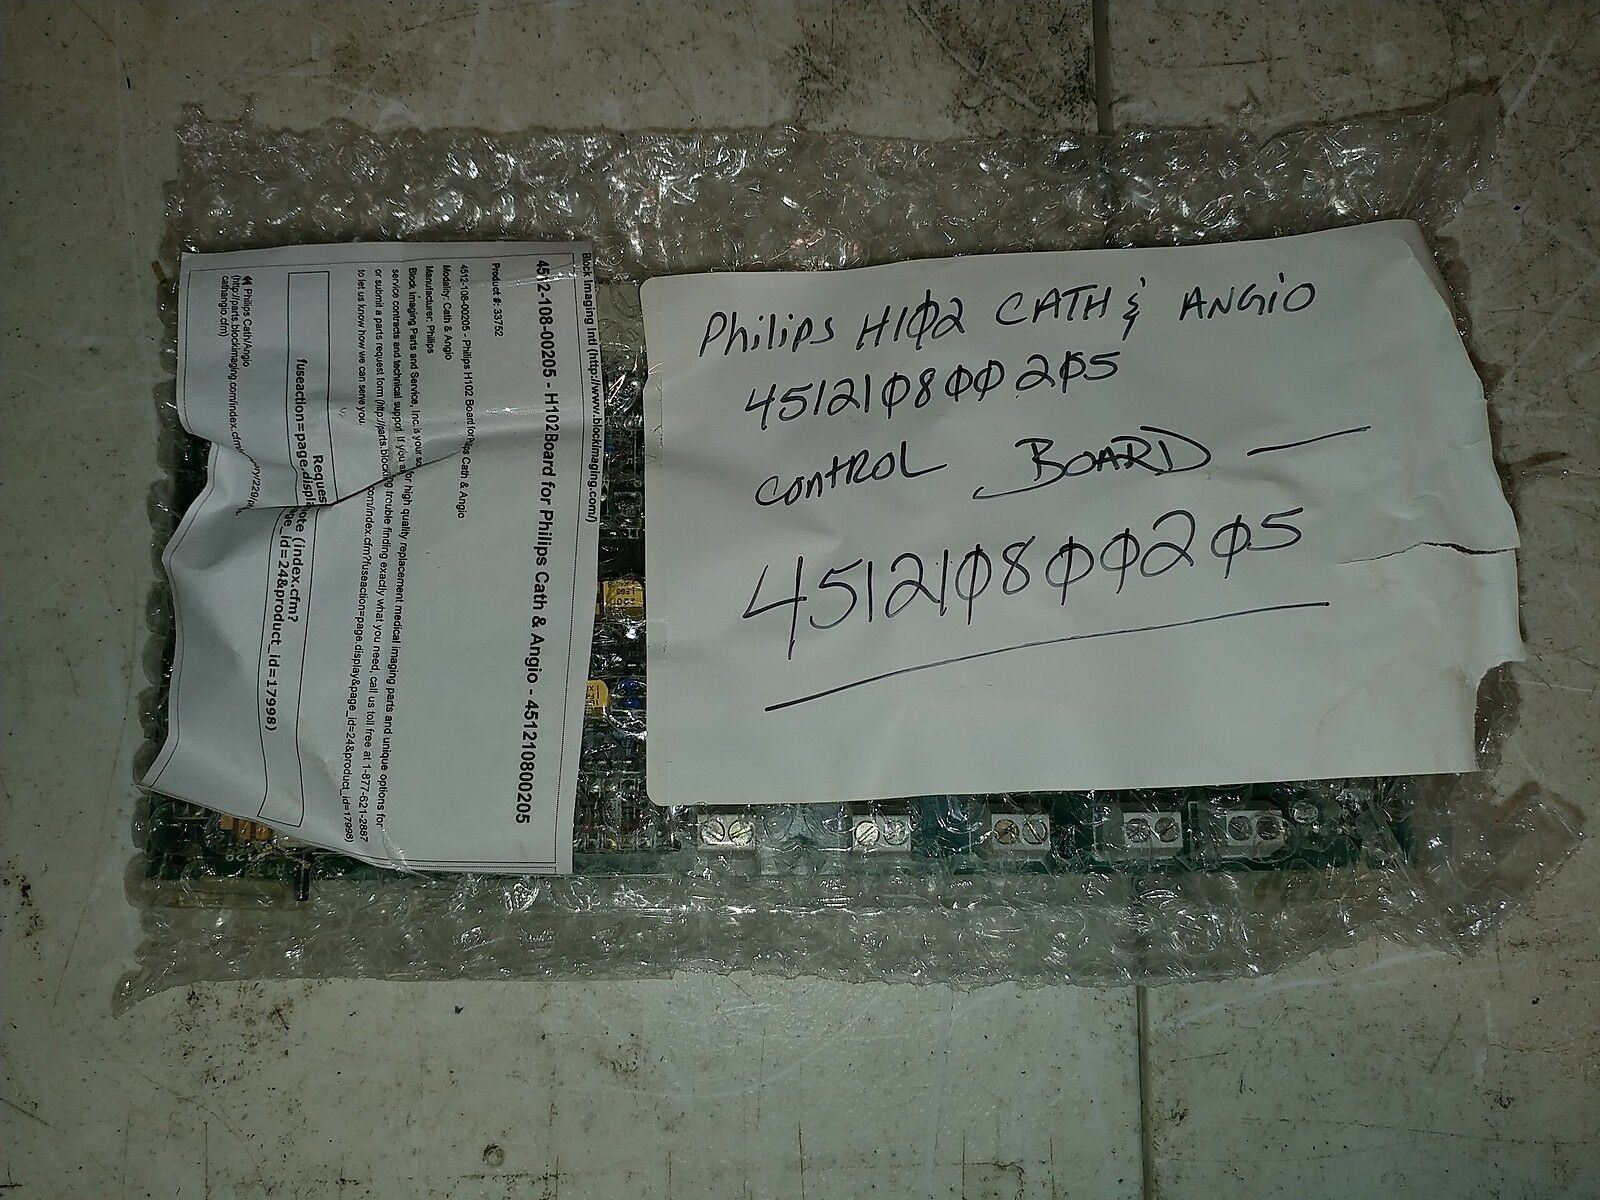 Block Imaging Intl (http://www.blockimaging.com/)
4512-108-00205 - H102Board for Philips Cath & Angio - 451210800205
Product #: 33752
4512-108-00205 - Philips H102 Board for Philips Cath & Angio
Modality: Cath & Angio
Manufacturer: Philips
Block Imaging Parts and Service, Inc. is your for high quality replacement medical imaging parts and unique options for
service contracts and technical support. If you are trouble finding exactly what you need, call us toll free at 1-877-621-2887
or submit a parts request form (http://parts.block com/index.cfm?fuseaction=page.display&page_id=24&product_id=17998)
to let us know how we can serve you.
(index.cfm?
fuseaction=page.display &product_id=17998)
Philips Cath/Angio
(http://parts.blockimaging.com/index.cfm
cathangio.cfm)
Philips H102 CATH & ANGIO
451210800205
CONTROL BOARD —
451210800205